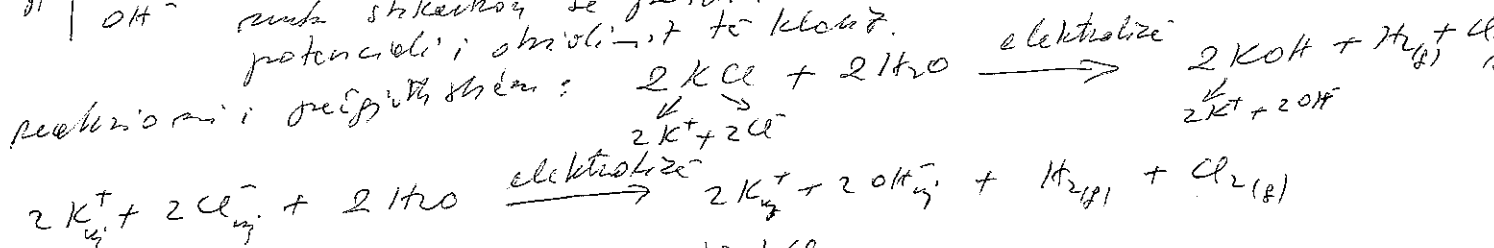 OH⁻ se
potenciali i oksidimit të klorit.
reaksioni i përgjithshëm : 2KCl + 2H₂O elektrolizë → 2KOH + H₂(g) + Cl
2K⁺ + 2Cl⁻ 2K⁺ + 2OH⁻
2K⁺uj + 2Cl⁻uj + 2H₂O elektrolizë → 2K⁺uj + 2OH⁻uj + H₂(g) + Cl₂(g)